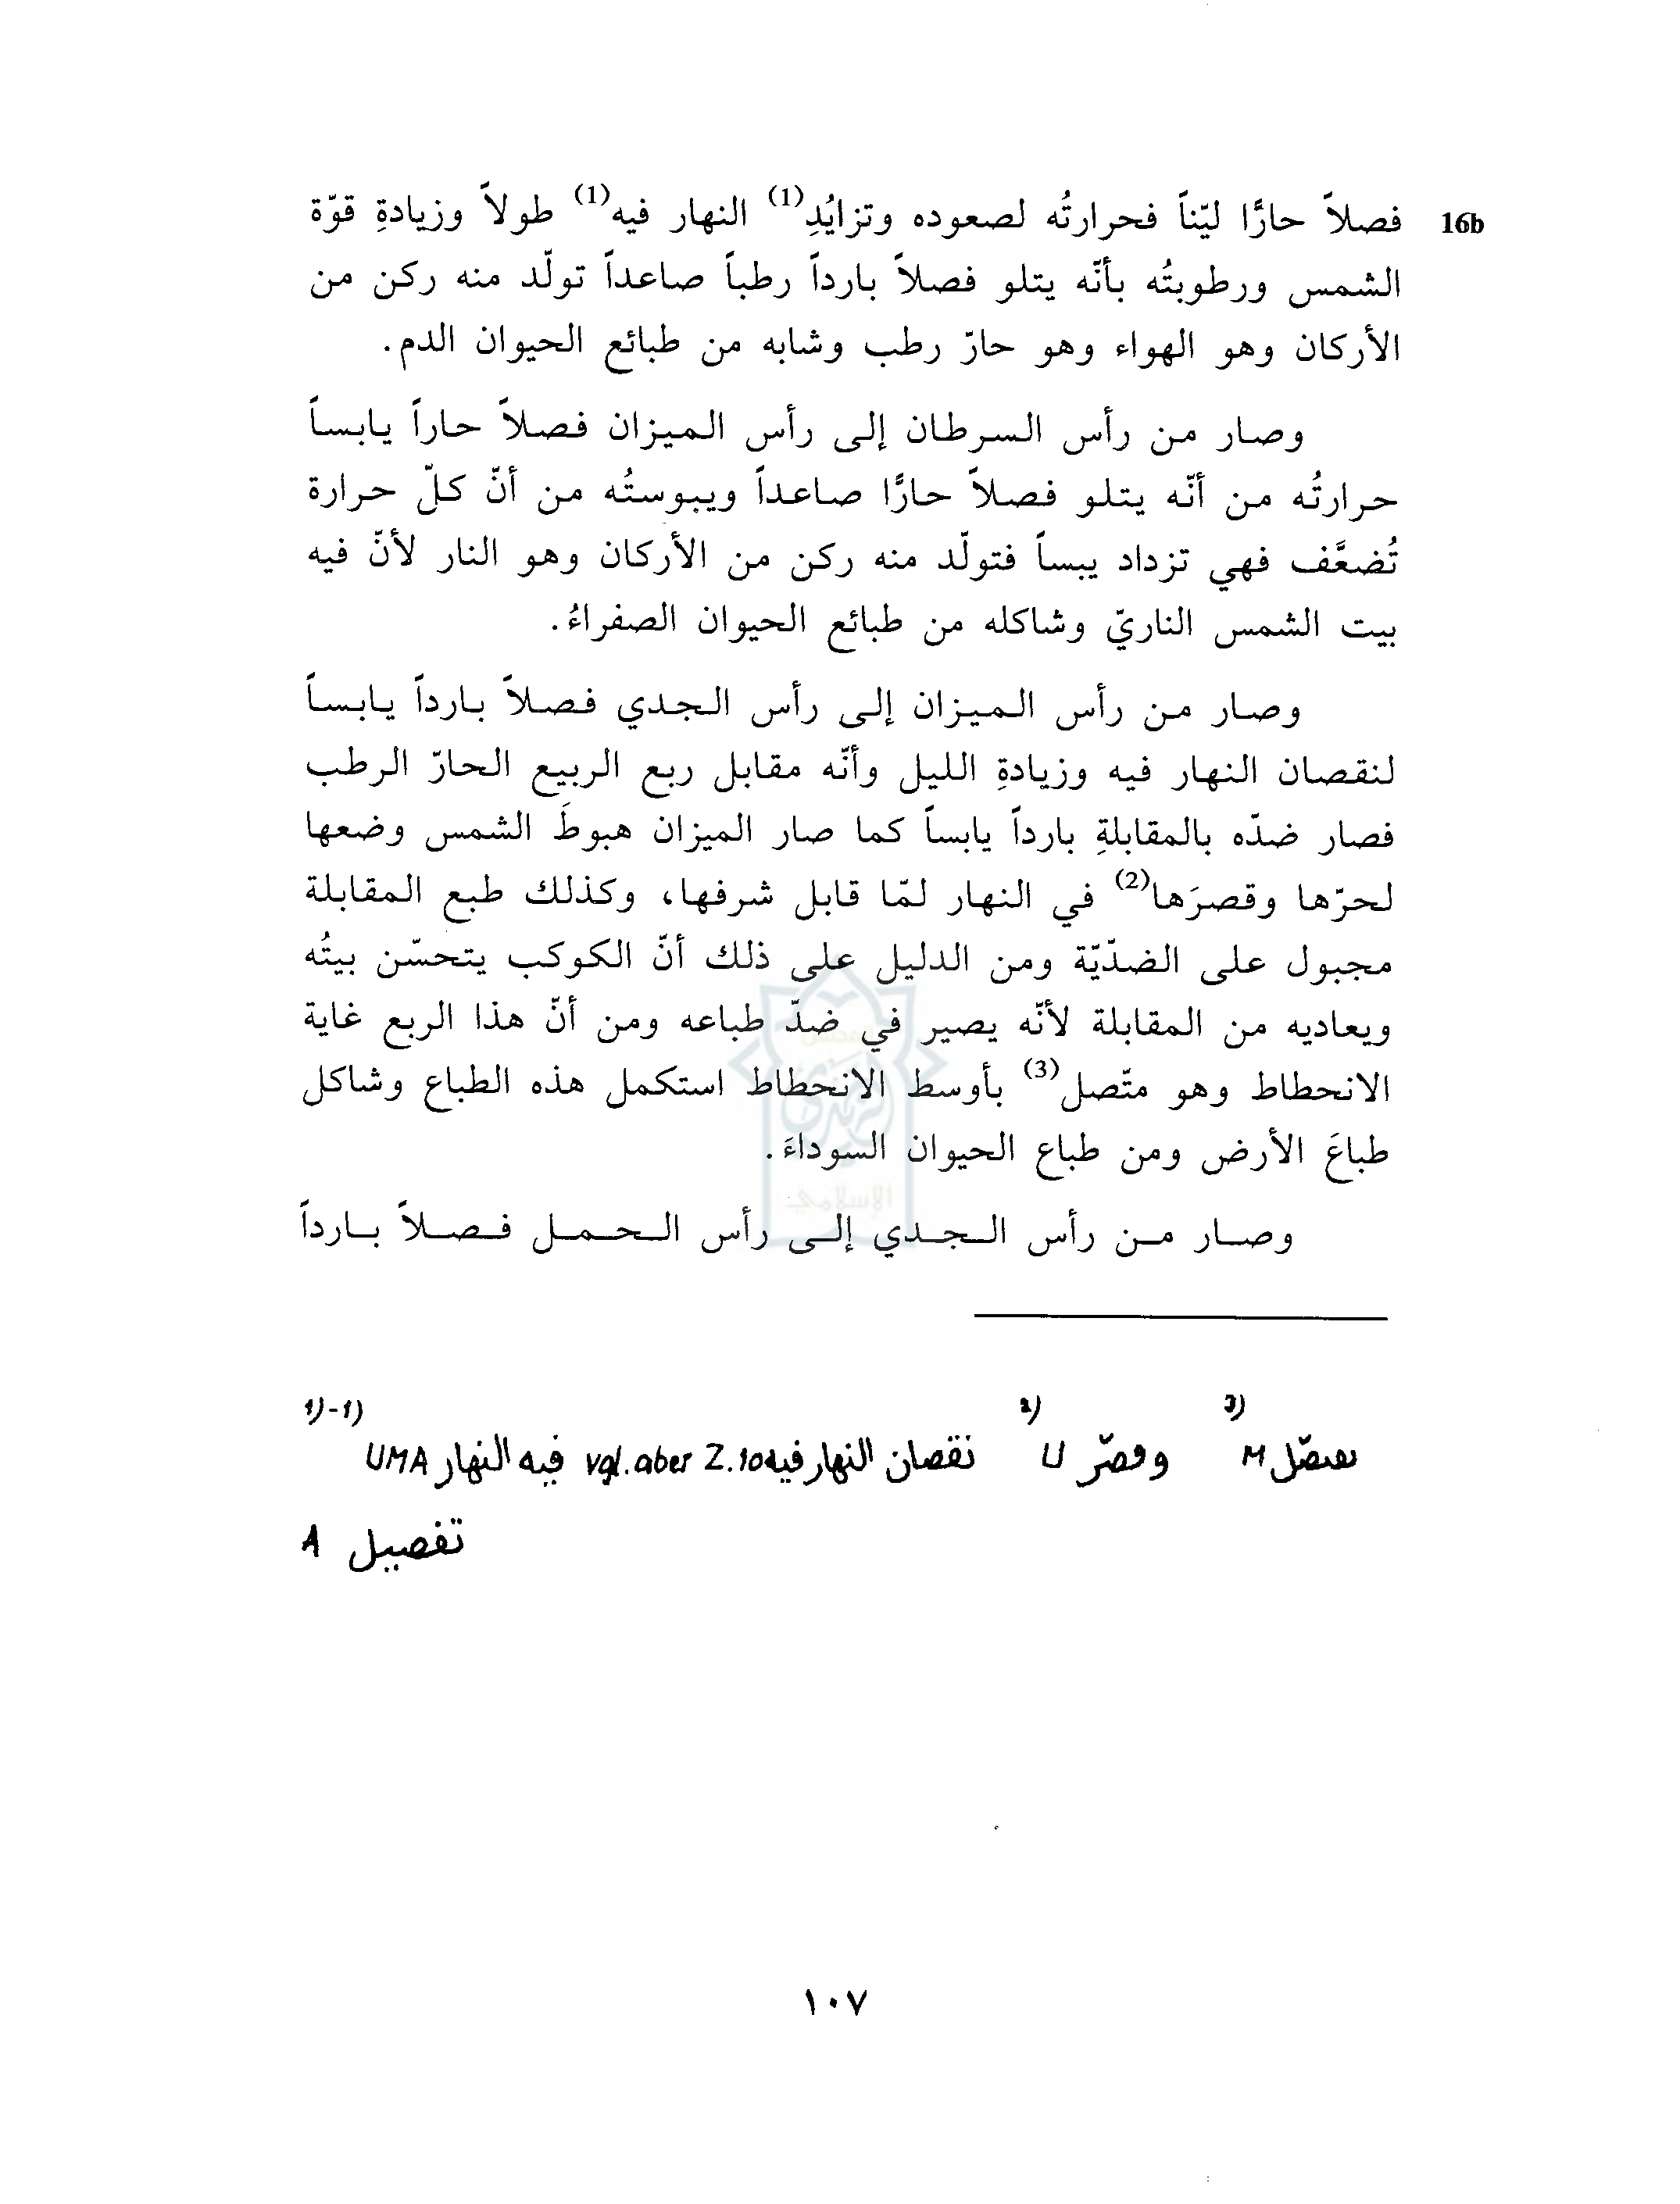 16b فصلاً حارًّا ليّناً فحرارتُه لصعوده وتزايُدِ(1) النهار فيه(1) طولاً وزيادةِ قوّة
الشمس ورطوبتُه بأنّه يتلو فصلاً بارداً رطباً صاعداً تولّد منه ركن من
الأركان وهو الهواء وهو حارّ رطب وشابه من طبائع الحيوان الدم.
وصار من رأس السرطان إلى رأس الميزان فصلاً حاراً يابساً
حرارتُه من أنّه يتلو فصلاً حارًّا صاعداً ويبوستُه من أنّ كلّ حرارة
تُضعَّف فهي تزداد يبساً فتولّد منه ركن من الأركان وهو النار لأنّ فيه
بيت الشمس الناريّ وشاكله من طبائع الحيوان الصفراءُ.
وصار من رأس الميزان إلى رأس الجدي فصلاً بارداً يابساً
لنقصان النهار فيه وزيادةِ الليل وأنّه مقابل ربع الربيع الحارّ الرطب
فصار ضدّه بالمقابلةِ بارداً يابساً كما صار الميزان هبوطَ الشمس وضعها
لحرّها وقصرَها(2) في النهار لمّا قابل شرفها، وكذلك طبع المقابلة
مجبول على الضدّيّة ومن الدليل على ذلك أنّ الكوكب يتحسّن بيتُه
ويعاديه من المقابلة لأنّه يصير في ضدّ طباعه ومن أنّ هذا الربع غاية
الانحطاط وهو متّصل(3) بأوسط الانحطاط استكمل هذه الطباع وشاكل
طباعَ الأرض ومن طباع الحيوان السوداءَ.
وصار من رأس الجدي إلى رأس الحمل فصلاً بارداً
1)-1) فيه النهار UMA vgl. aber Z.10 نقصان النهار فيه 2) وقصّر U 3) M
تفصيل A
١٠٧